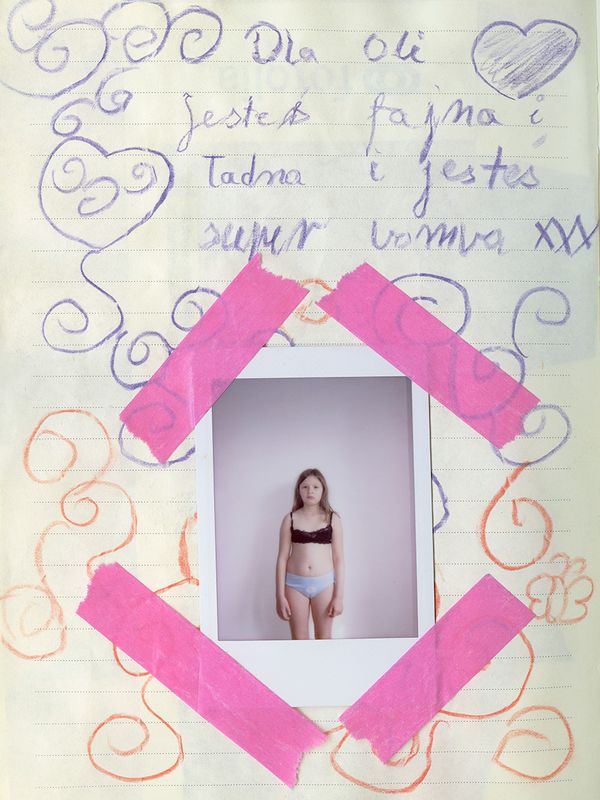 Dla Oli
jesteś fajna i
Ładna i jestes
super vomva XXX